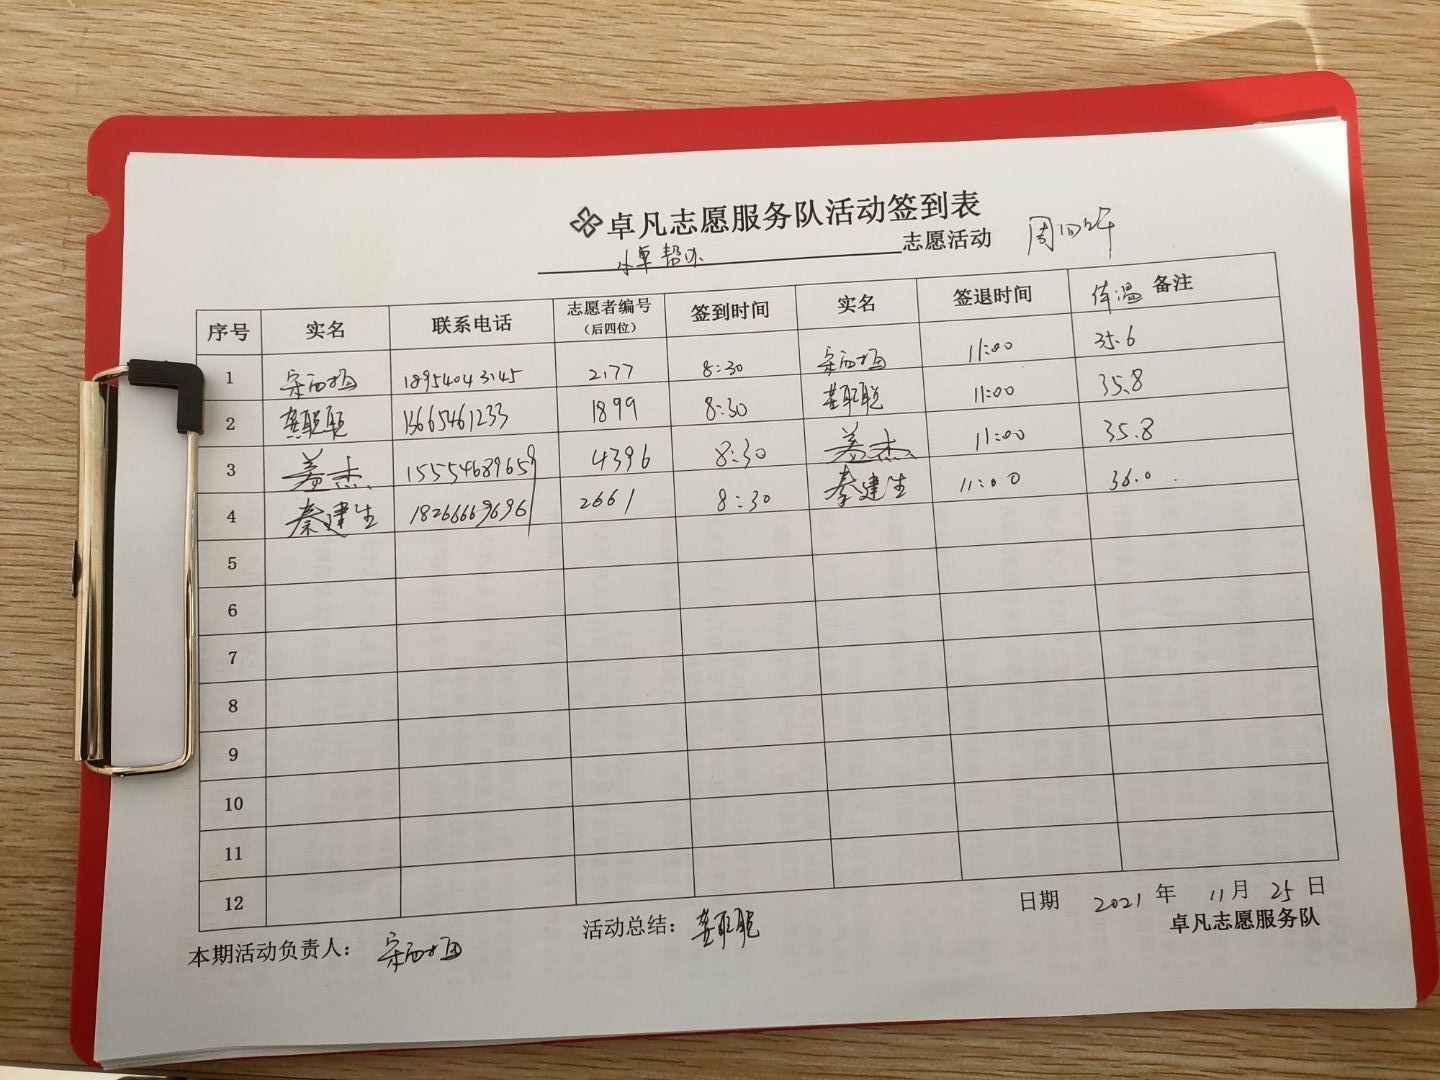 卓凡志愿服务队活动签到表
小卓帮办 志愿活动 周四上午
序号 实名 联系电话 志愿者编号（后四位） 签到时间 实名 签退时间 体温 备注
1 18954043145 2177 8:30 11:00 35.6
2 龚聪聪 13665461233 1899 8:30 龚聪聪 11:00 35.8
3 盖杰 15554689659 4396 8:30 盖杰 11:00 35.8
4 秦建生 18266669696 2661 8:30 秦建生 11:00 36.0
5
6
7
8
9
10
11
12
日期 2021 年 11 月 25 日
本期活动负责人： 活动总结： 龚聪聪 卓凡志愿服务队